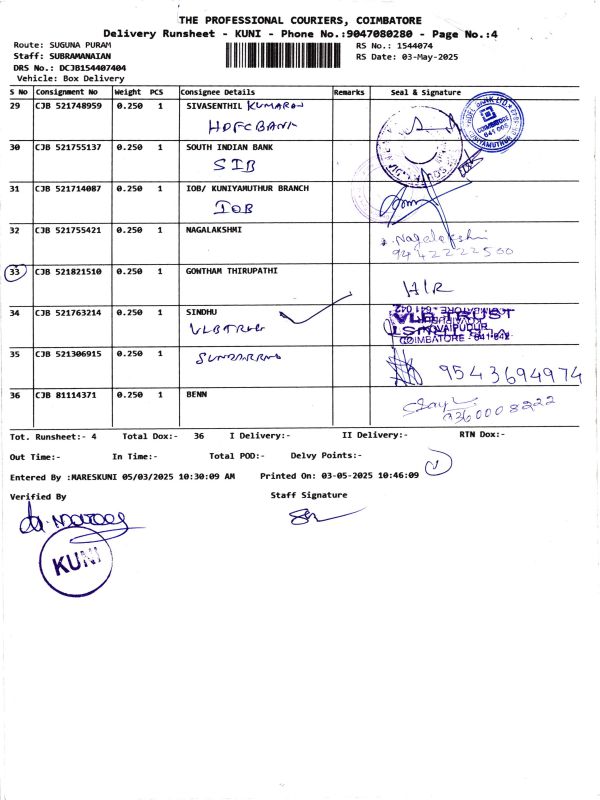 THE PROFESSIONAL COURIERS, COIMBATORE
Delivery Runsheet - KUNI - Phone No.:9047080280 - Page No.:4
Route: SUGUNA PURAM
RS No.: 1544074
Staff: SUBRAMANAIAN
RS Date: 03-May-2025
DRS No.: DCJB154407404
Vehicle: Box Delivery
S No Consignment No Weight PCS Consignee Details Remarks Seal & Signature
29 CJB 521748959 0.250 1 SIVASENTHIL KUMARAN
HDFC BANK
30 CJB 521755137 0.250 1 SOUTH INDIAN BANK
SIB
31 CJB 521714087 0.250 1 IOB/ KUNIYAMUTHUR BRANCH
IOB
32 CJB 521755421 0.250 1 NAGALAKSHMI
Nagalakshmi
9442222500
33 CJB 521821510 0.250 1 GOWTHAM THIRUPATHI
H/R
34 CJB 521763214 0.250 1 SINDHU
VLB TRUST
VLB TRUST
KOVAIPUDUR
COIMBATORE - 641 042
35 CJB 521306915 0.250 1
9543694974
36 CJB 81114371 0.250 1 BENN
9360008222
Tot. Runsheet:- 4 Total Dox:- 36 I Delivery:- II Delivery:- RTN Dox:-
Out Time:- In Time:- Total POD:- Delvy Points:-
Entered By :MARESKUNI 05/03/2025 10:30:09 AM Printed On: 03-05-2025 10:46:09
Verified By Staff Signature
KUNI